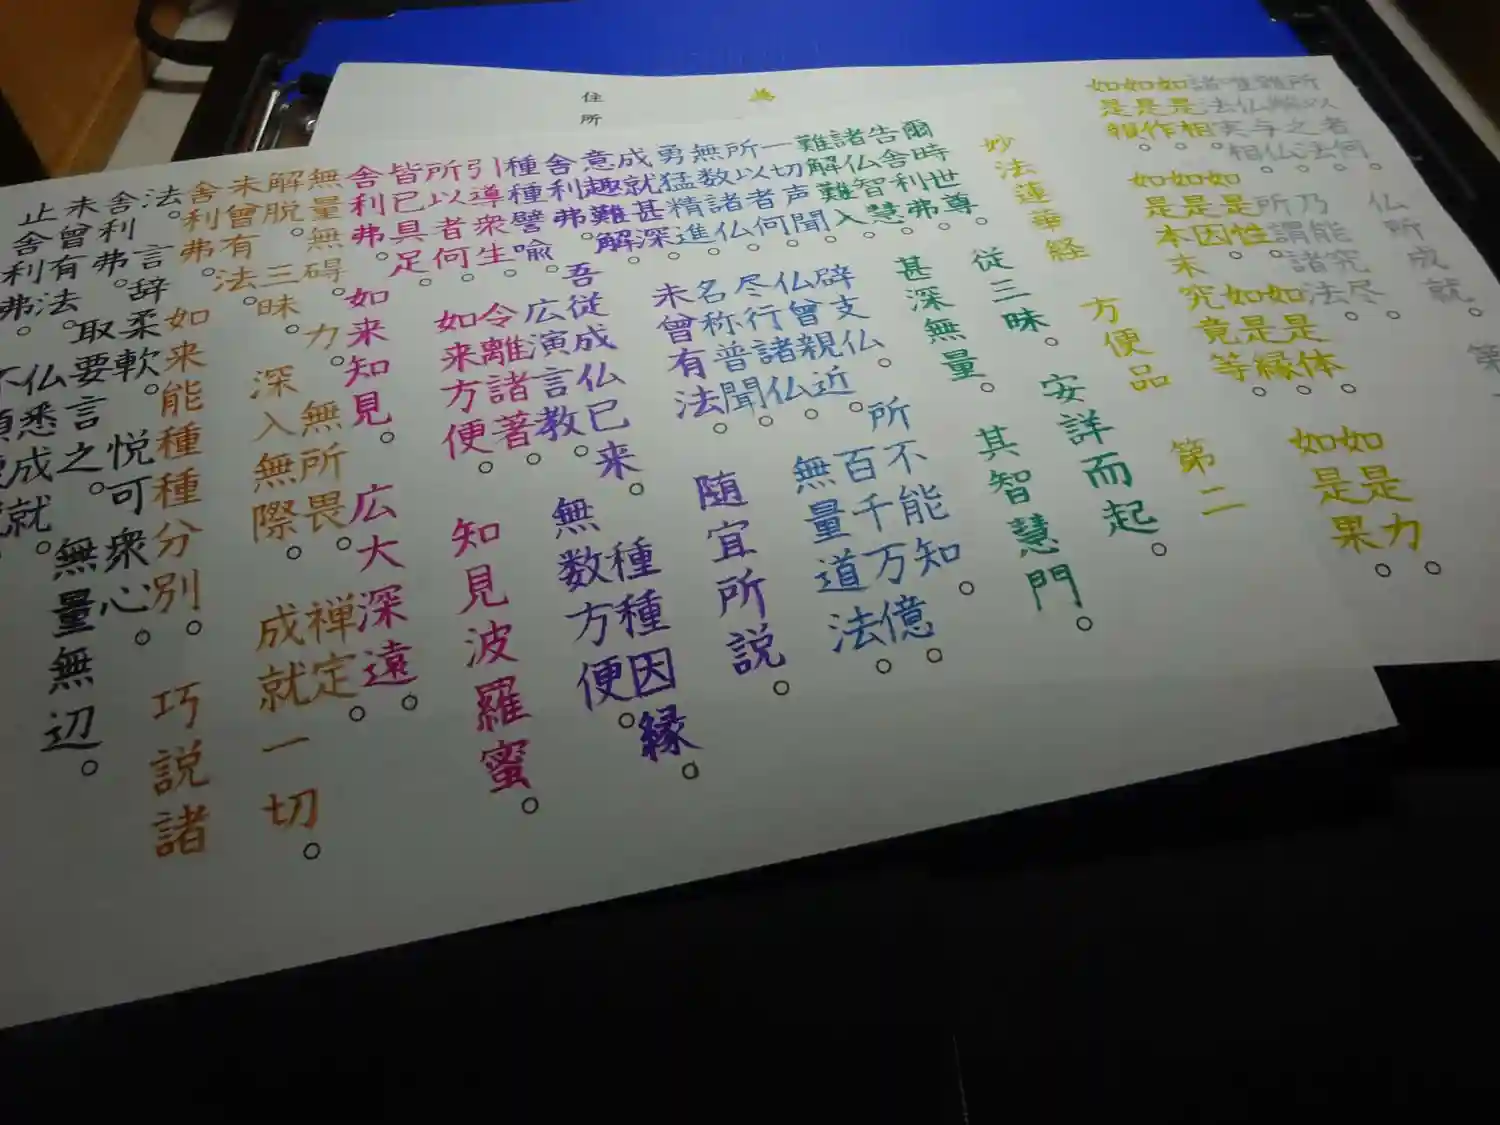 所以者何。仏所成就。第
難解之法。
唯仏与仏。乃能究尽。
諸法実相。所謂諸法。
如是相。如是性。如是体。如是力。
如是作。如是因。如是縁。如是果。
如是報。如是本末究竟等。
為
住所
妙法蓮華経 方便品 第二
爾時世尊。従三昧。安詳而起。
告舎利弗。
諸仏智慧。甚深無量。其智慧門。
難解難入。
一切声聞。辟支仏。所不能知。
所以者何。仏曾親近。百千万億。
無数諸仏。尽行諸仏。無量道法。
勇猛精進。名称普聞。
成就甚深。未曾有法。随宜所説。
意趣難解。
舎利弗。吾従成仏已来。種種因縁。
種種譬喩。広演言教。無数方便。
引導衆生。令離諸著。
所以者何。如来方便。知見波羅蜜。
皆已具足。
舎利弗。如来知見。広大深遠。
無量無碍。力。無所畏。禅定。
解脱。三昧。深入無際。成就一切。
未曾有法。
舎利弗。如来能種種分別。巧説諸
法。言辞柔軟。悦可衆心。
舎利弗。取要言之。無量無辺。
未曾有法。仏悉成就。
止舎利弗。不